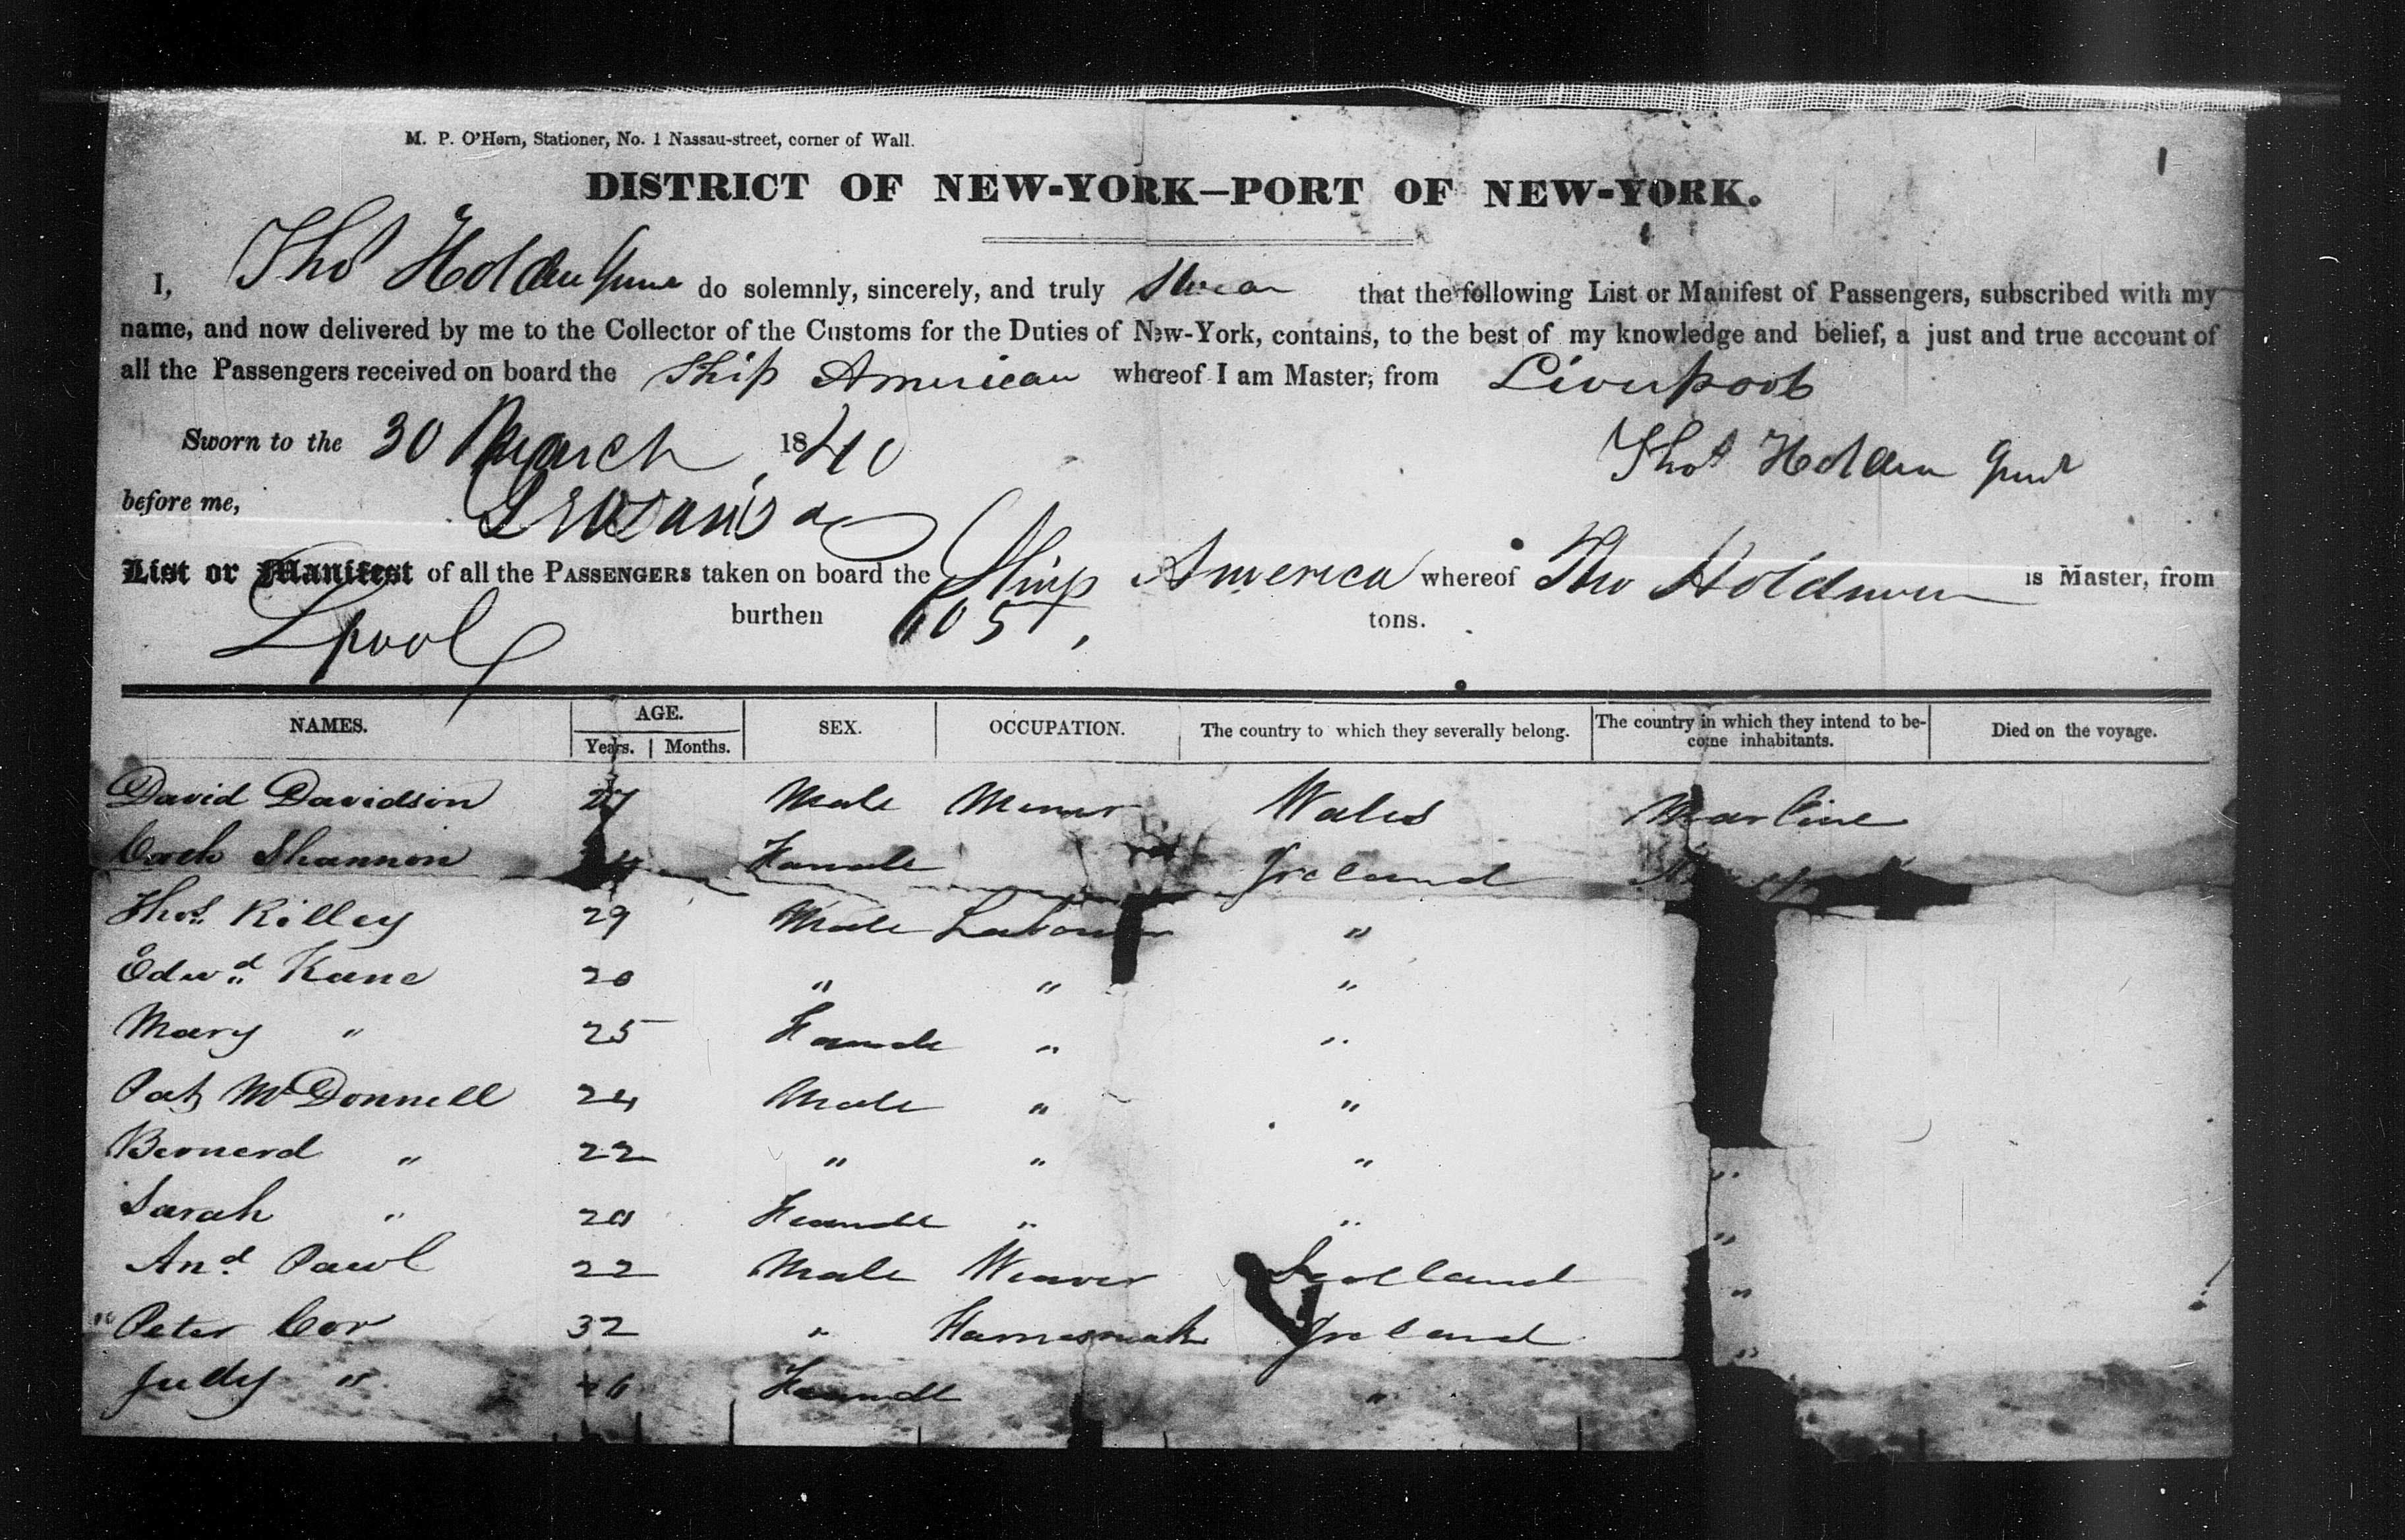 M. P. O'Hern, Stationer, No. 1 Nassau-street, corner of Wall.
DISTRICT OF NEW-YORK—PORT OF NEW-YORK.
I, Thos Holden do solemnly, sincerely, and truly Swear that the following List or Manifest of Passengers, subscribed with my
name, and now delivered by me to the Collector of the Customs for the Duties of New-York, contains, to the best of my knowledge and belief, a just and true account of
all the Passengers received on board the Ship American whereof I am Master, from Liverpool
Sworn to the 30 March 1840 Thos Holden
before me,
List or Manifest of all the PASSENGERS taken on board the Ship America whereof Tho is Master, from
Lpool burthen 605 tons.
NAMES. AGE. SEX. OCCUPATION. The country to which they severally belong. The country in which they intend to be- Died on the voyage.
Years. Months. come inhabitants.
David Davidson 27 Male Miner Wales
Shannon Female Ireland
Thos Killey 29 Male Labourer "
Edwd Kane 20 " " "
Mary " 25 Female " "
Pat McDonnell 24 Male " "
Bernerd " 22 " " " "
Sarah " 20 Female " " "
And Paul 22 Male Weaver Scotland "
" Peter Cor 32 " Ireland "
Judy " Female "